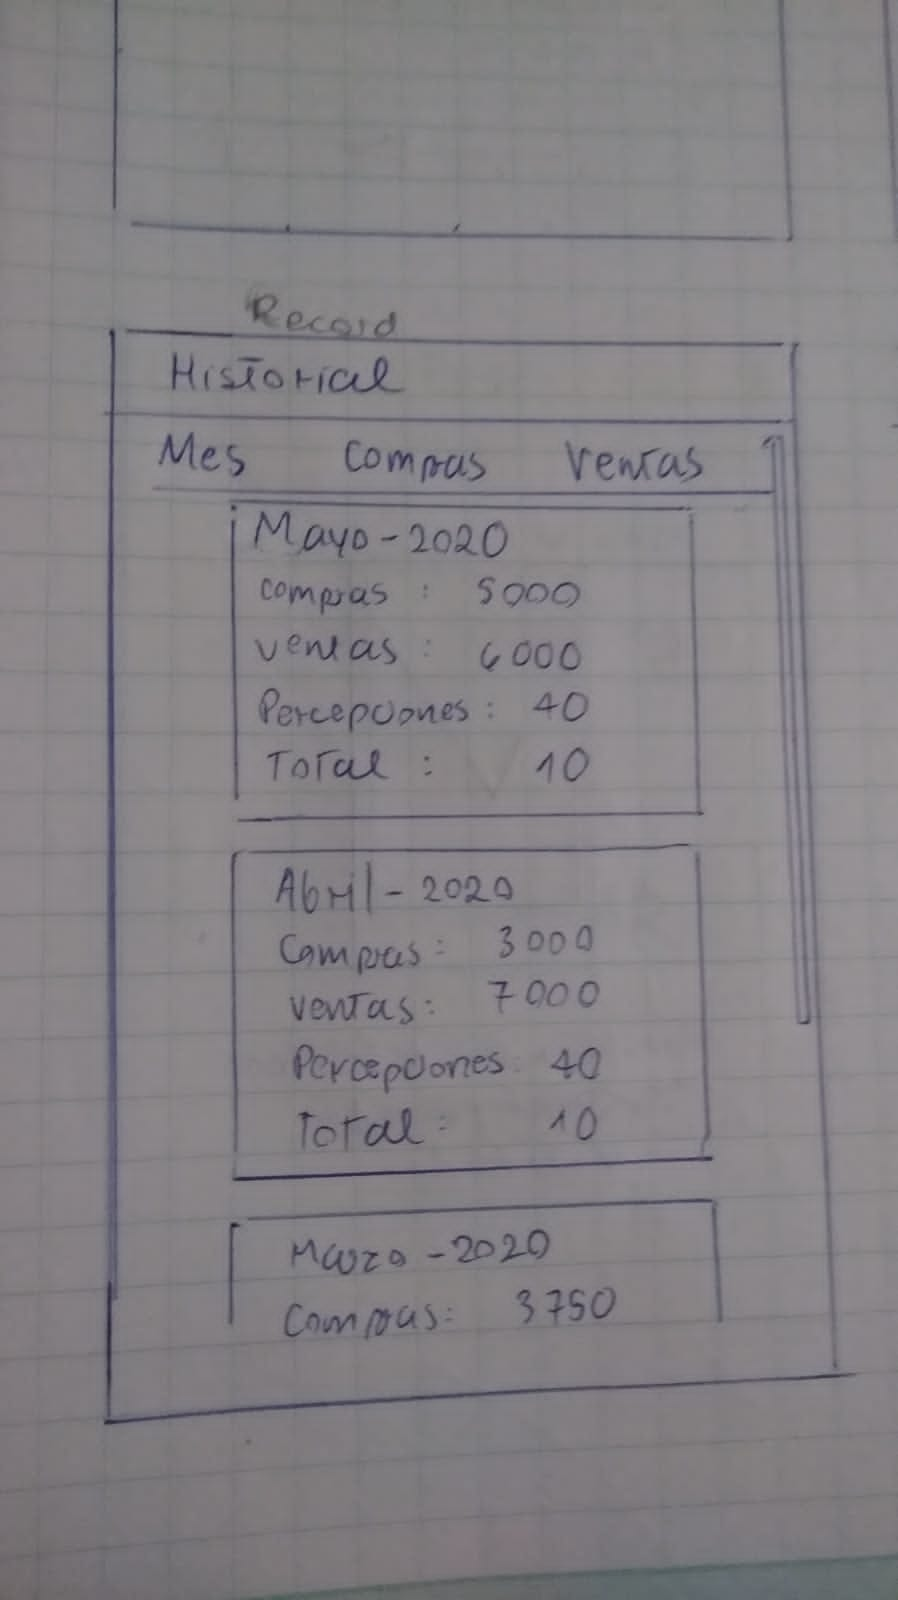 Record
Historial
Mes Compras Ventas
Mayo - 2020
compras : 5000
ventas : 6000
Percepciones : 40
Total : 10
Abril - 2020
Compras : 3000
ventas : 7000
Percepciones : 40
Total : 10
Marzo - 2020
Compras : 3750